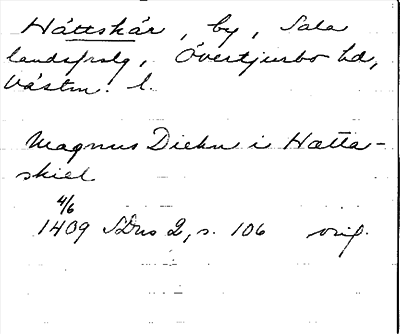 Håttskär, by, Sala
landsfrslg, Övertjurbo hd,
Västm. l.
Magnus Diekn i Hætta-
skiel
4/6
1409 SDns 2, s. 106 orig.